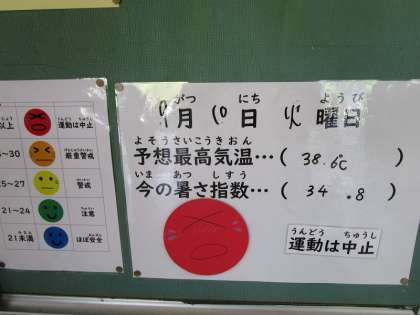 以上 運動は中止
厳重警戒
25~27 警戒
21~24 注意
21未満 ほぼ安全
がつ にち ようび
9月10日 火曜日
よそうさいこうきおん
予想最高気温…( 38.6℃ )
いま あつ しすう
今の暑さ指数…( 34.8 )
うんどう ちゅうし
運動は中止